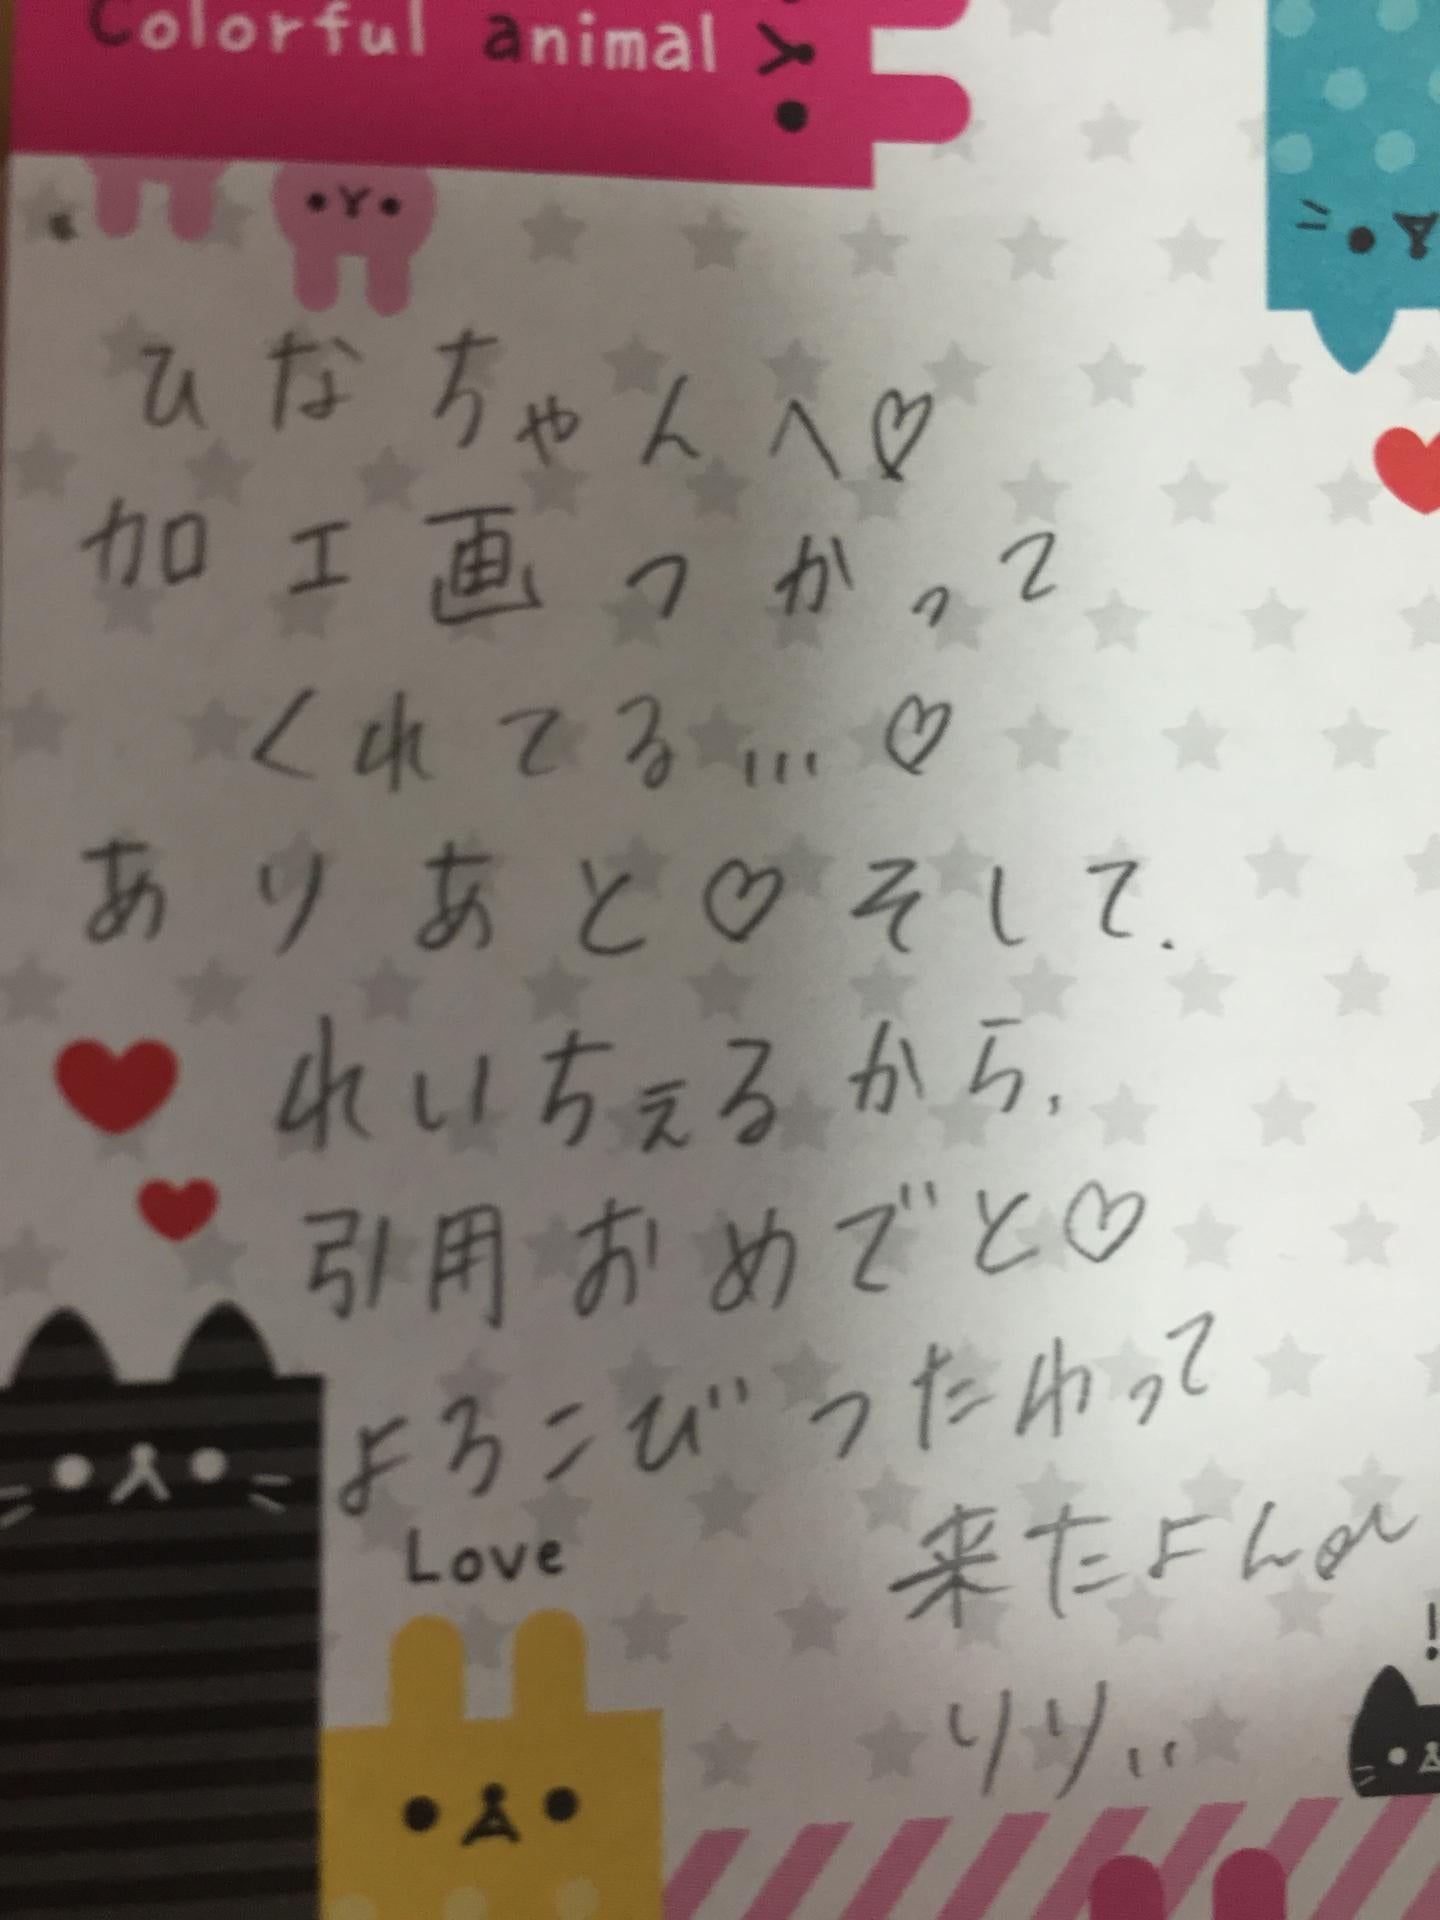 Colorful animal
ひなちゃんへ♡
加工画つかって
くれてる…♡
ありあと♡そして.
れいちぇるから、
引用おめでと♡
よろこびつたわって
来たよん
Love
!
りり、、